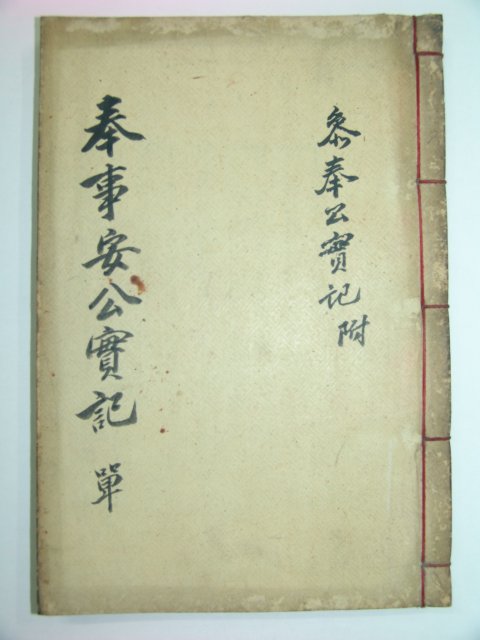 參奉公實記 附
奉事安公實記 單